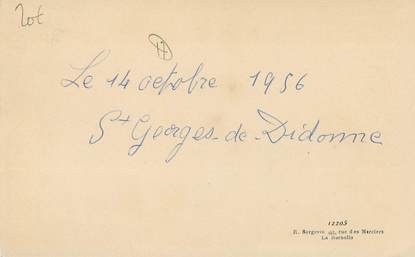 20€
17
Le 14 octobre 1956
St Georges-de-Didonne
12205
R. Bergevin 42, rue des Merciers
La Rochelle